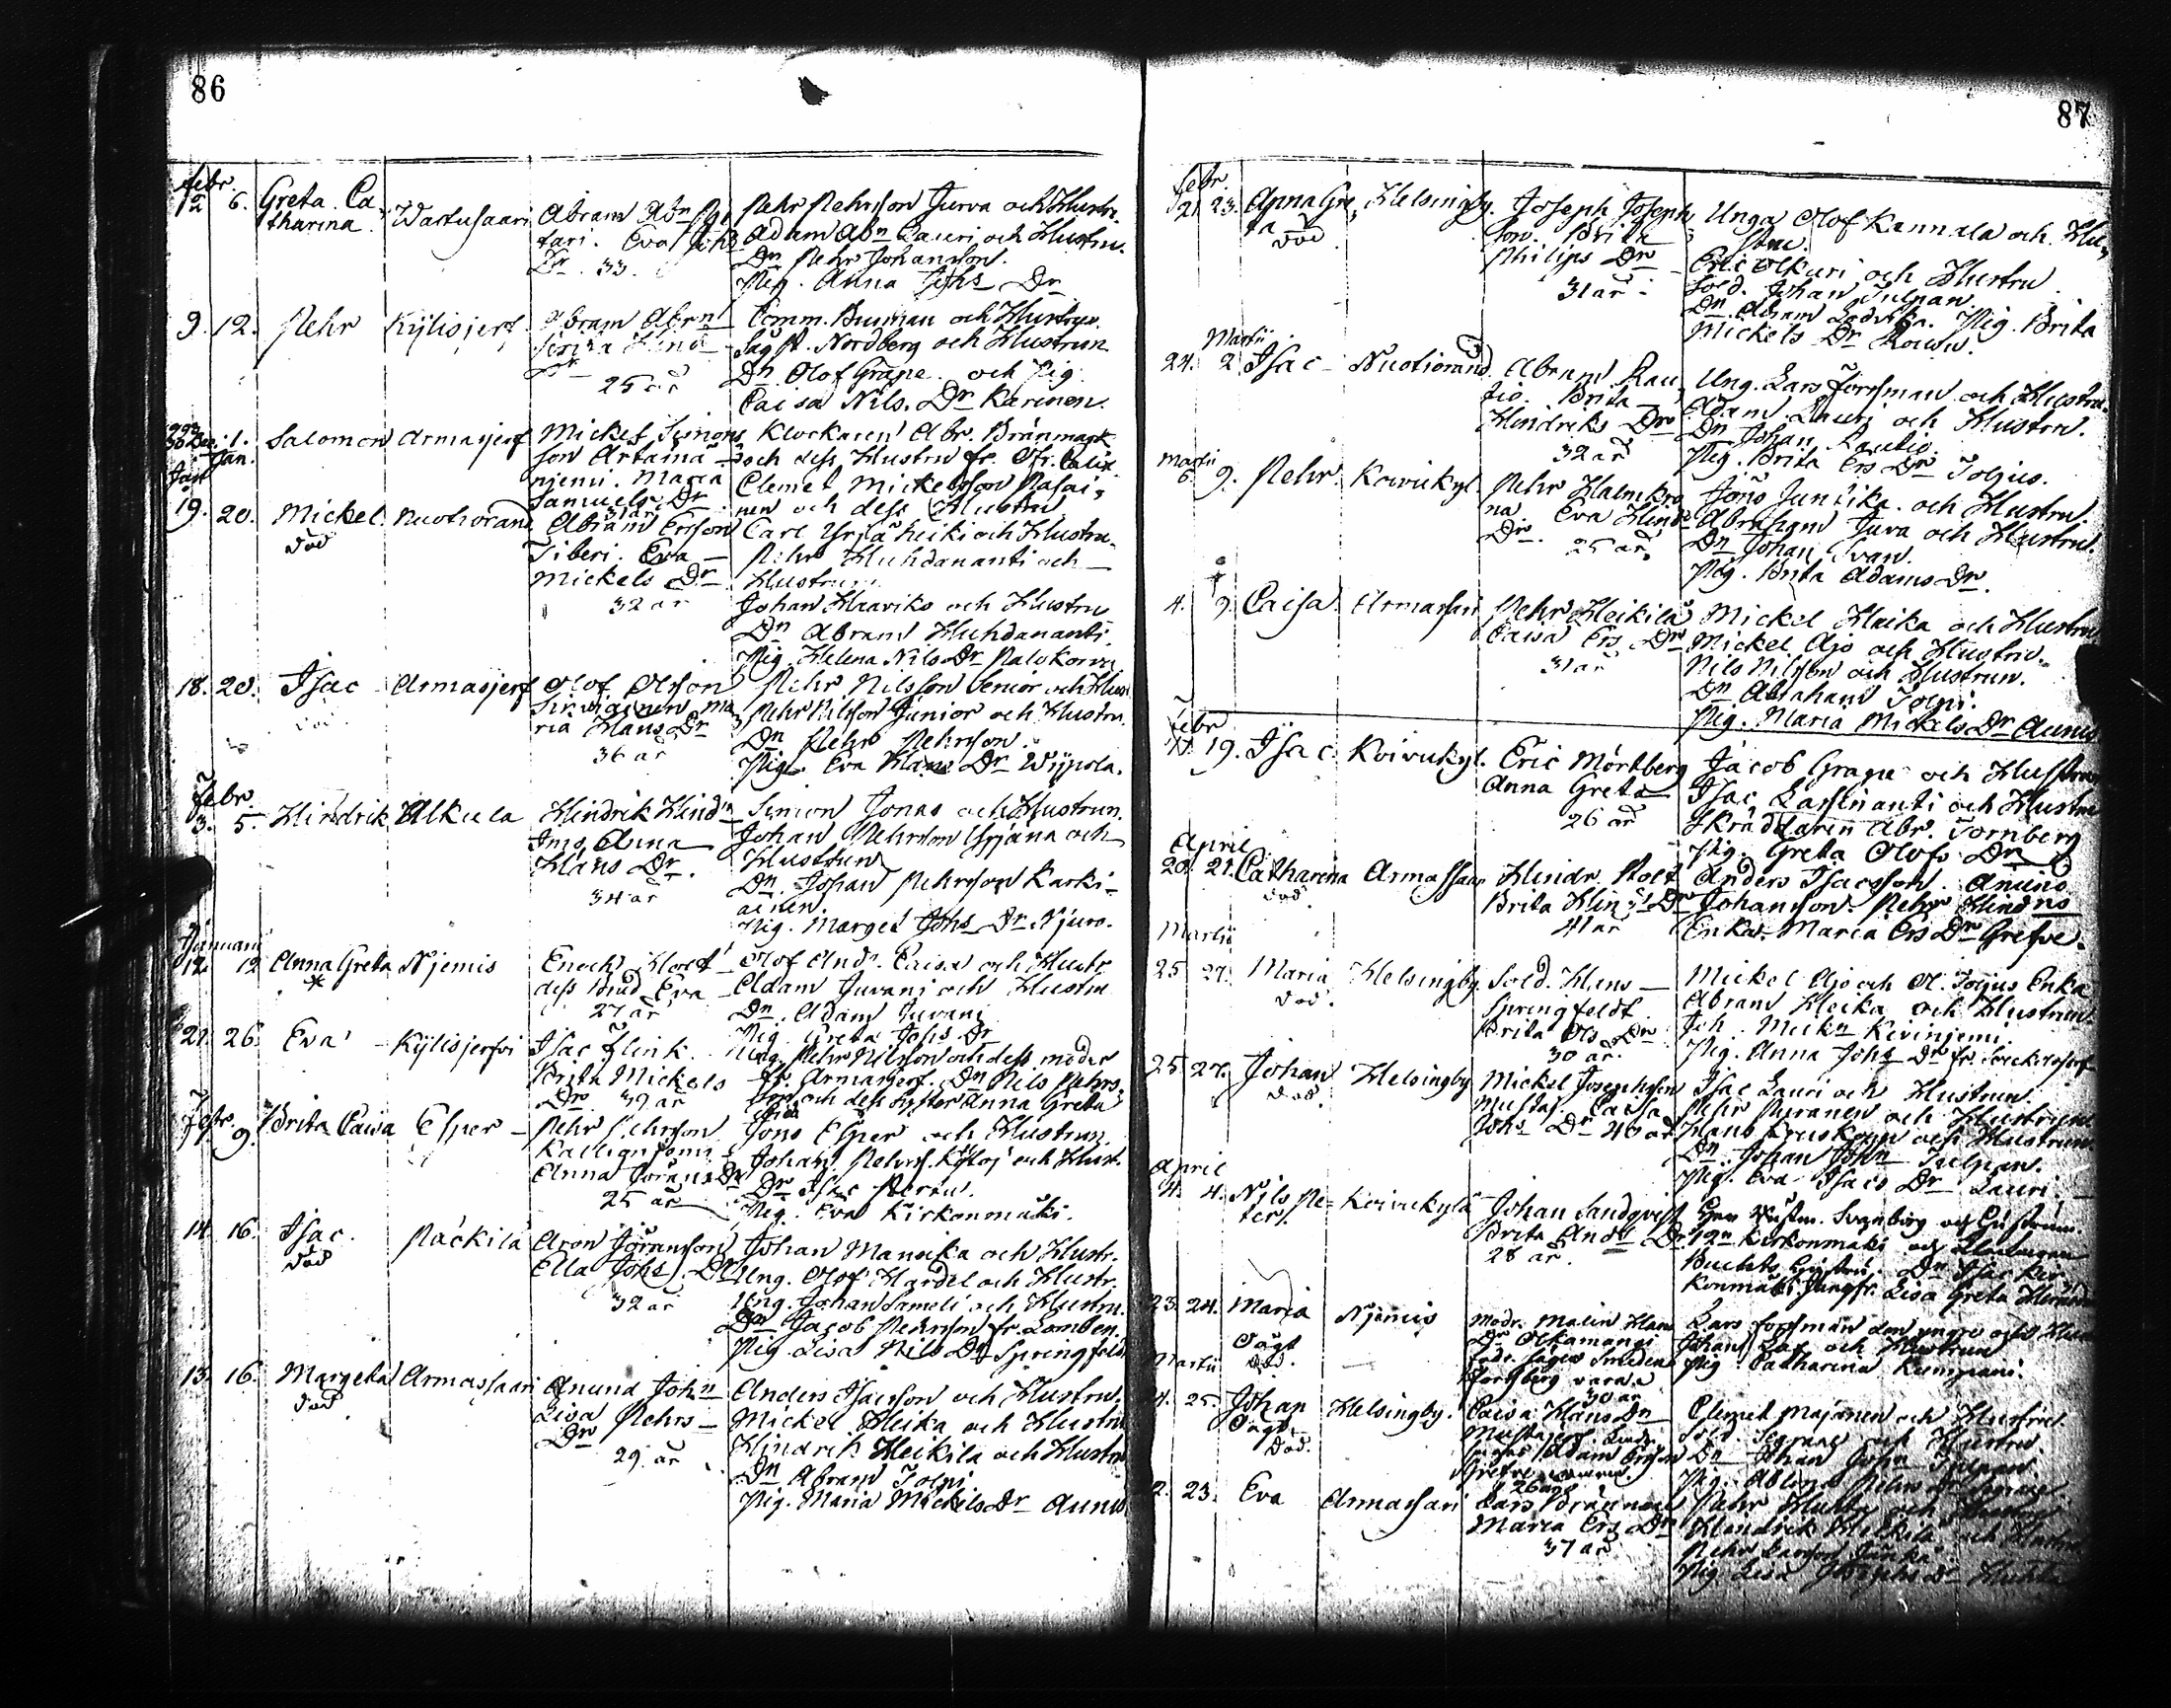 86
febr.
12 6. Greta Ca
tharina Wartusaari Abram Abn
tari. Eva Johs
Dr. 33.
Pehr Pehrsson Jurva och Hustru.
Adam Abn Lauri och Hustru.
Dn Pehr Johansson.
Pig. Anna Johs Dr
9. 12. Pehr Kylisjerf Abram Abrn
Hind
Dr
25 år
Comm. Burman och Hustrun.
Nordberg och Hustrun
Dn Olof Grape och Pig.
Caisa Nils. Dr Karinen.
30 Dec. 1. Jan. Salomon Armasjerf Mickel Simons
son Artaina
njemi. Maria
Samuels Dr
31 år
Klockaren Abr. Brännmark
och dess Hustru fr. Öfr. Calix
Clemet Mickelsson Pasai
nen och dess Hustru
Jan
19. 20. Mickel Nuotiorand
död
Abram Ersson
Tiberi. Eva
Mickels Dr
32 år
Carl Yrjäheiki och Hustru
Pehr Huhdananti och
Hustrun
Johan Haaviko och Hustru
Dn Abram Huhdananti
Pig. Helena Nils Dr Palokorva
18. 20. Isac Armasjerf Olof Olsson
ria Hans Dr
36 år
Pehr Nilsson Senior och Hust
Pehr Nilsson Junior och Hustru.
Dn Pehr Pehrsson.
Pig. Eva Hans Dr
Febr.
3. 5. Hindrik Alkula Hindrik Hind
Anna
Hans Dr.
34 år
Simon Jonas och Hustrun.
Johan Pehrsson Yrjäna och
Hustrun
Dn. Johan Pehrsson Karki
ainen.
Pig. Marget Johs Dr Njuro.
Januari
12. 12 Anna Greta Njemis Enoch
dess Brud Eva
27 år
Olof And. Caisa och Hustr
Adam Juvani och Hustru
Dn. Adam Juvani
Pig. Greta Johs Dr
21. 26. Eva Kylisjerfvi Isac Flink.
Brita Mickels
Dr 39 år
Ung. Pehr Nilsson och dess moder
fr. Armasjerf. Dn Nils Pehrs
son och dess syster Anna Greta
Febr.
9. Brita Caisa Esper Pehr Pehrsson
Kalliguijoni
Anna Jörans Dr
25 år
Jöns Esper och Hustrun.
Johan Pehrs. och Hust.
Dn Isac
Pig. Eva Kirkonmäki.
14. 16. Isac. Päckilä
död
Aron Jöransson
Ella Johs. Dr
32 år
Johan Mansika och Hustr.
Ung. Olof Hardel och Hustr.
Ung. Johan Sameli och Hustru.
Dn Jacob Pehrsson fr. Lomben.
Pig. Lisa Nils Dr Springfeldt
13. 16. Margeta Armassaari
död
Anund Johns
Lisa Pehrs
Dr
29 år
Anders Isacsson och Hustru.
Mickel Heika och Hustru
Hindrik Heikila och Hustr
Dn Abram Tolpi
Pig. Maria Mickels Dr Aunis
87
febr.
21. 23. Anna Gre,
ta död
Helsingby. Joseph Joseph
son. Brita
Philips Dr
31 år
Unga Olof Kannala och Hu,
stru
Eric Alkuri och Hustru
Sold. Johan Tulpan.
Dn Abram Pig. Brita
Mickels Dr
Martii
24. 2 Isac Nuotiorand Abram Rau
tio. Brita
Hindriks Dr
32 år
Ung. Lars Forssman och Hustru.
Adam Lauri och Hustru.
Dn Johan Rautio.
Pig. Brita Ers Dr Toljus.
Martii
6. 9. Pehr Koivukyl Pehr Halmkro
na. Eva Hind
Dr. 25 år.
Jöns Juntika och Hustru
Abraham Juva och Hustru.
Dn Johan Ivan.
Pig. Brita Adams Dr.
4. 9. Caisa Armassari Pehr Heikilä
Caisa Ers Dr
31 år
Mickel Heika och Hustru
Mickel Ajo och Hustru.
Nils Nilsson och Hustrun.
Dn Abraham Tolpi.
Pig. Maria Mickels Dr Aunis
Febr
17. 19. Isac Koivukyl. Eric Mörtberg
Anna Greta
26 år
Jacob Grape och Hustru
Isac Lassinanti och Hustru
Skräddaren Abr. Tornberg
Pig. Greta Olofs Dr
April
20. 21. Catharina Armassaar
död.
Hindr. Stolt
Brita Hind Dr
41 år
Anders Isacsson. Anund
Johansson. Pehr Hind
Enka. Maria Ers Dr Grefve.
Martii
25 27. Maria Helsingby
död.
Sold. Hans
Springfeldt.
Brita Ols Dr
30 år.
Mickel Ajo och Ol. Toljus Enka
Abram Heika och Hustrun
Joh. Mickn Kivinjemi.
Pig. Anna Johs Dr fr.
25 27. Johan Helsingby
död.
Mickel Josephsson
Mustaj. Caisa
Johs Dr 40 år
Isac Lauri och Hustrun.
Pehr Puranen och Hustrun
Hans Kruskopp och Hustrun.
Dn. Johan John Tulpan.
Pig. Eva Isacs Dr Lauri.
April
4. 4. Nils Pe
ter.
Koivukylä Johan Sandqvist
Brita Ands Dr
28 år.
Svanberg och
Kirkonmäki och
Dn Isac Kir
konmäki. Jungfr. Lisa Greta
23. 24. Maria Njemis
Oägt
död.
Modr. Malin Hans
Dr Alkamangi
Fadr. säges Smeden
Forssberg vara.
30 år
Lars Forssman den yngre och Hustru
Johan Lax och Hustrun
Pig. Catharina Kumpani.
Martii
4. 25. Johan Helsingby.
Oägt.
Död.
Caisa Hans Dr
Adam Ersson
Grefve vara.
26 år
Clemet Majanen och Hustrun.
och Hustru
Dn Johan John Tulpan.
2. 23. Eva Armassari Lars Brännare
Maria Ers Dr
37 år
Pehr Huhta och
Hindrik Heikilä och Hustru
Pehr Larsson
Pig. Lisa Josephs Dr Huhta